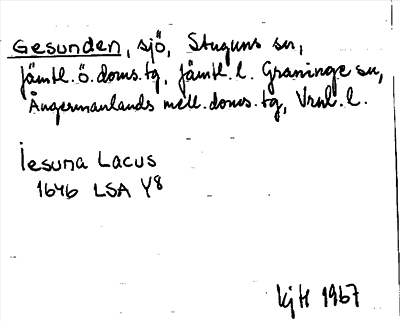 Gesunden, sjö, Stuguns sn,
Jämtl. ö. doms. tg, Jämtl. l. Graninge sn,
Ångermanlands mell. doms. tg, Vrnl. l.
Iesuna Lacus
1646 LSA Y8
KjH 1967